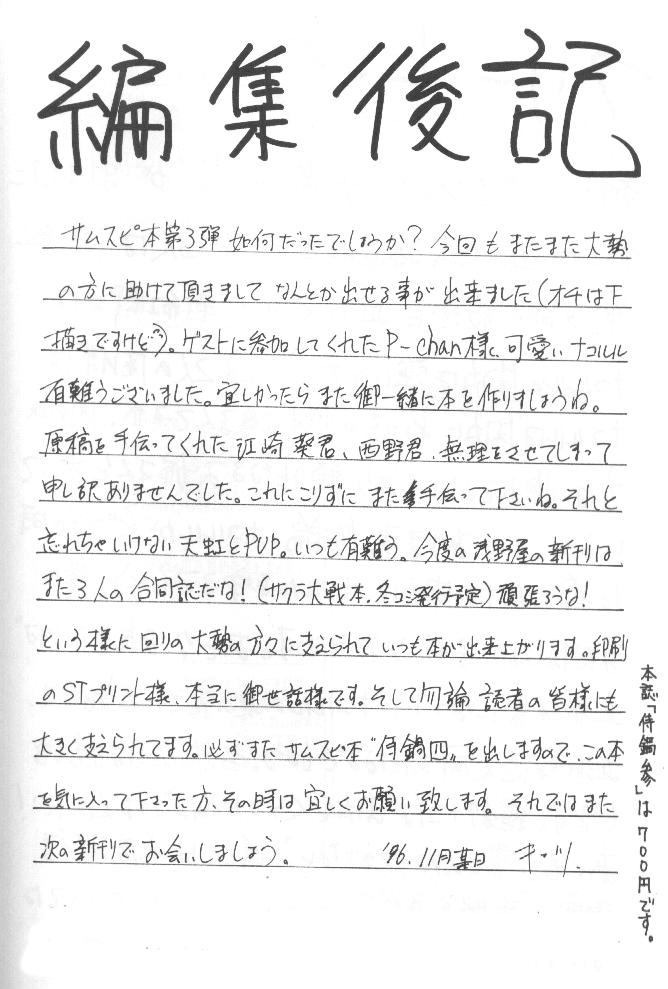 編集後記
サムスピ本第3弾 如何だったでしょうか? 今回もまたまた大勢
の方に助けて頂きまして なんとか出せる事が出来ました(オチは下
描きですけど)。ゲストに参加してくれたP-chan様、可愛いナコルル
有難うございました。宜しかったらまた御一緒に本を作りましょうね。
原稿を手伝ってくれた江崎葵君、西野君、無理をさせてしまって
申し訳ありませんでした。これにこりずに また手伝って下さいね。それと
忘れちゃいけない 天虹とPUP。いつも有難う。今度の浅野屋の新刊は
また3人の合同誌だな!(サクラ大戦本、冬コミ発行予定)頑張ろうな!
という様に回りの大勢の方々に支えられて いつも本が出来上がります。印刷
のSTプリント様、本当に御世話様です。そして勿論 読者の皆様にも
大きく支えられてます。必ずまた サムスピ本〝侍鍋四〟を出しますので、この本
を気に入って下さった方、その時は宜しくお願い致します。それではまた
次の新刊でお会いしましょう。 '96.11月某日
本誌「侍鍋参」は700円です。